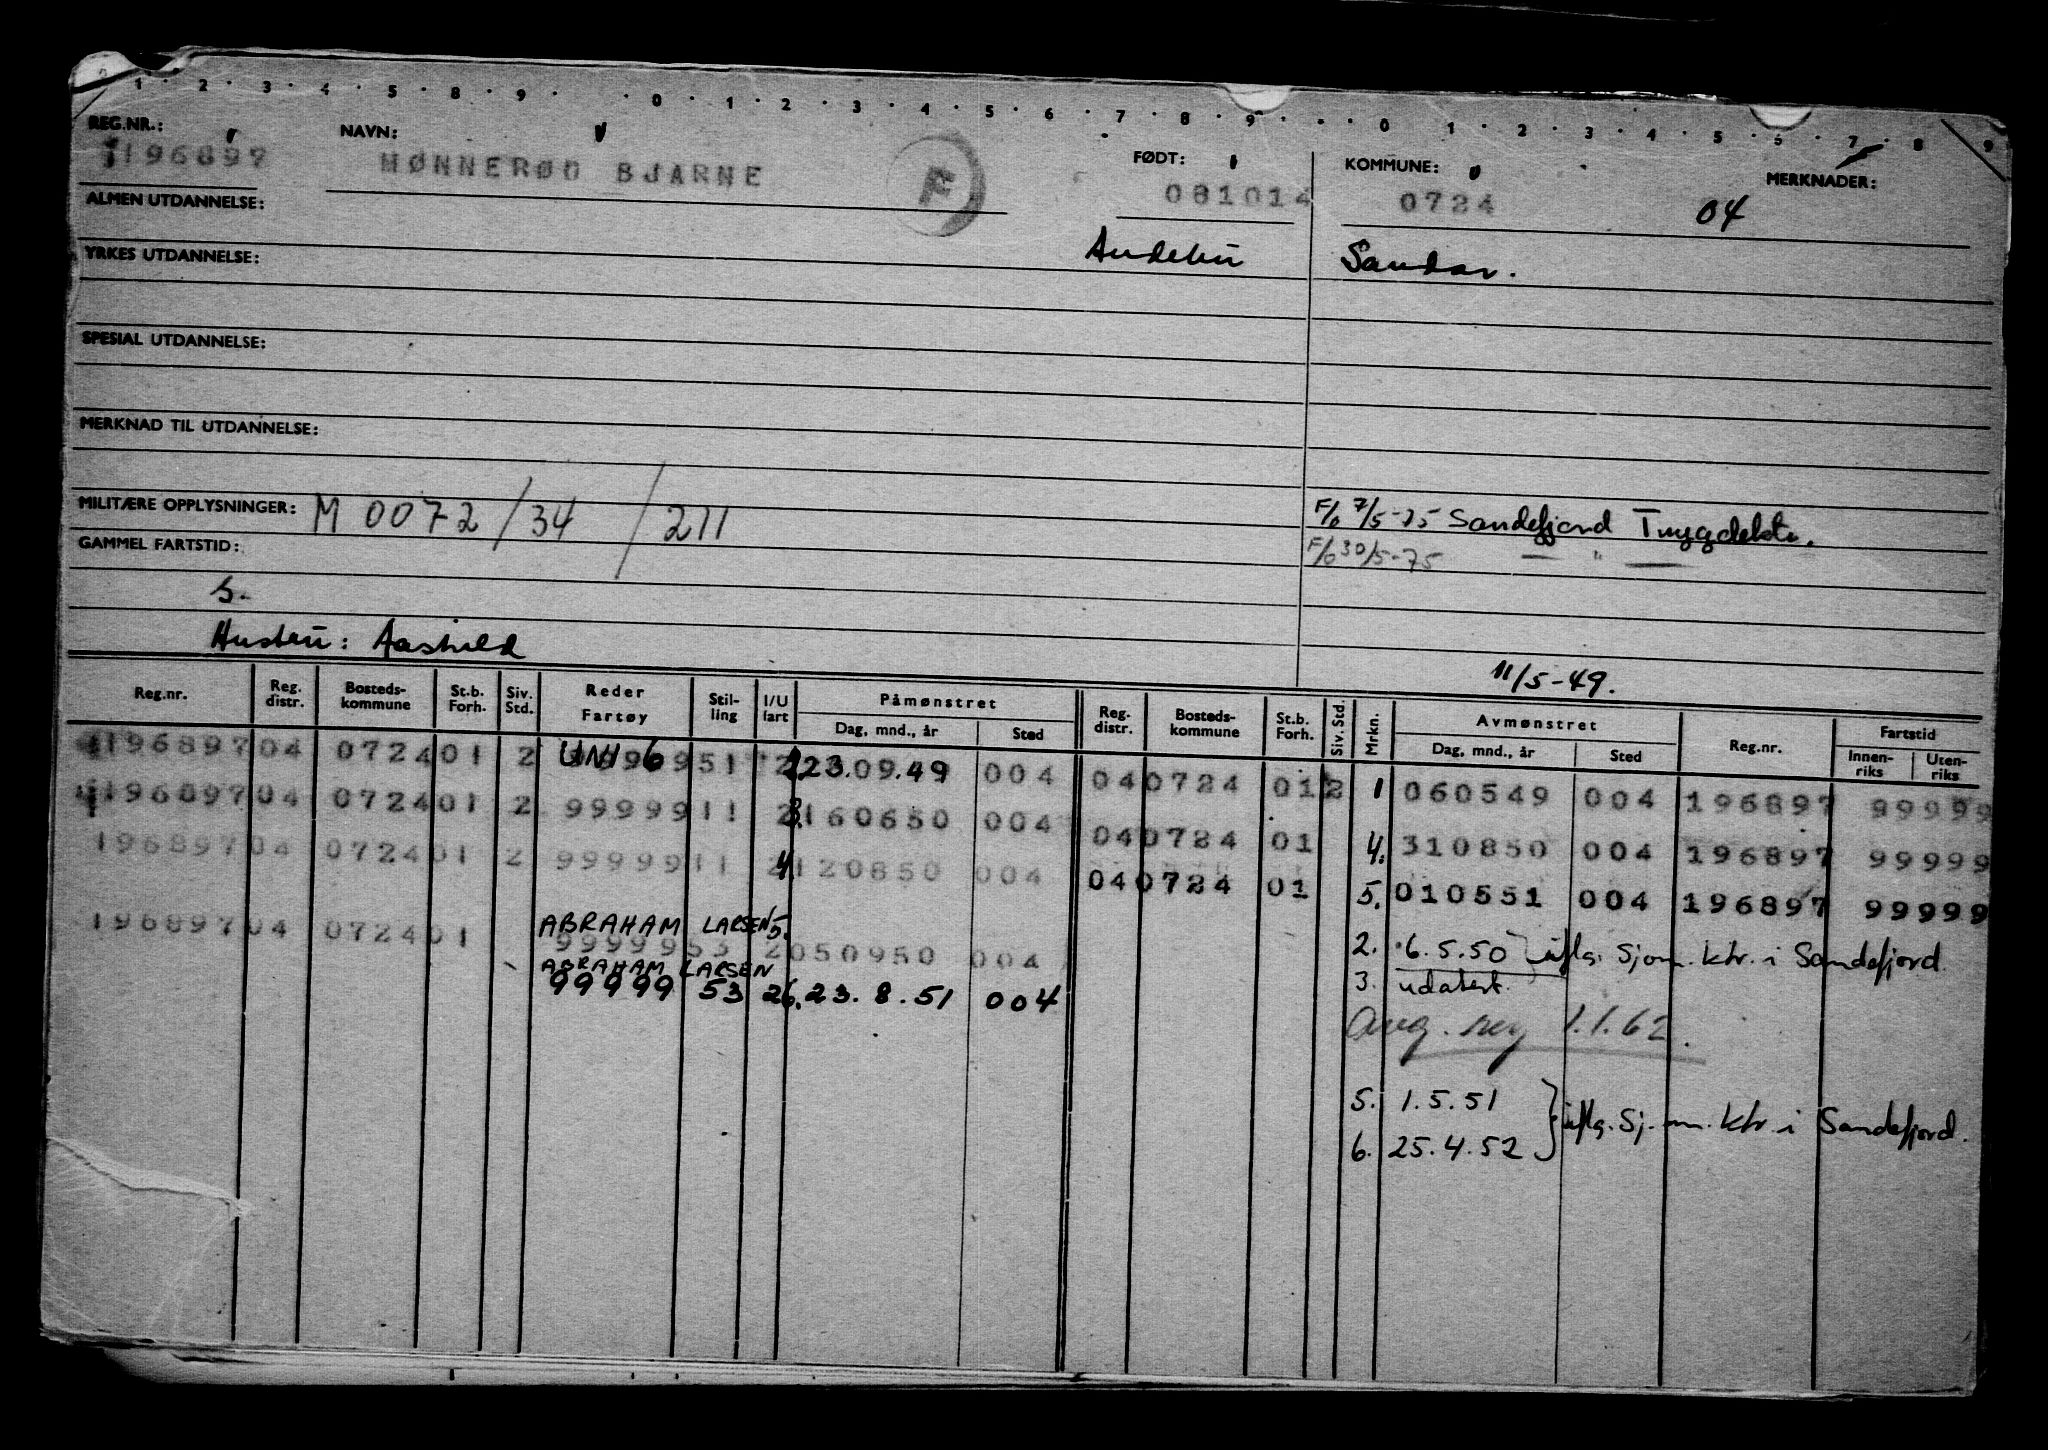 1 · 2 · 3 · 4 · 5 · 8 · 9 · · 0 · 1 · 2 · 3 · 4 · 5 · 6 · 7 · 8 · 9 · · · 0 · 1 · 2 · 3 · 4 · 5 · 6 · 7 · 8 · 9
REG.NR.: NAVN: FØDT: KOMMUNE: MERKNADER:
196897 MØNNERØD BJARNE F 081014 0724 04
ALMEN UTDANNELSE:
Andebu Sandar.
YRKES UTDANNELSE:
SPESIAL UTDANNELSE:
MERKNAD TIL UTDANNELSE:
MILITÆRE OPPLYSNINGER: M 0072/34/211 F/6 7/5-75 Sandefjord Trygdektr.
GAMMEL FARTSTID: F/6 30/5-75 — " —
S.
Hustru: Aashild
11/5-49.
Reg.nr. Reg. distr. Bosteds-kommune St.b. Forh. Siv. Std. Reder Fartøy Stil-ling I/U fart Påmønstret Dag, mnd., år Sted Reg. distr. Bosteds-kommune St.b. Forh. Siv. Std. Mrkn. Avmønstret Dag, mnd., år Sted Reg.nr. Fartstid Innen-riks Uten-riks
196897 04 0724 01 2 UNI 6 99999 51 2 23.09.49 004 04 0724 01 2 1 060549 004 196897 99999
196897 04 0724 01 2 99999 11 2 3. 160650 004 04 0724 01 4. 310850 004 196897 99999
196897 04 0724 01 2 99999 11 2 4 120850 004 04 0724 01 5. 010551 004 196897 99999
ABRAHAM LARSEN 5.
196897 04 0724 01 99999 53 2 050950 004 2. 6.5.50 } iflg. Sjøm. ktr. i Sandefjord.
ABRAHAM LARSEN
99999 53 2 6. 23.8.51 004 3. udatert.
Avg. reg 1.1.62.
5. 1.5.51
6. 25.4.52 } iflg. Sj. m. ktr. i Sandefjord.